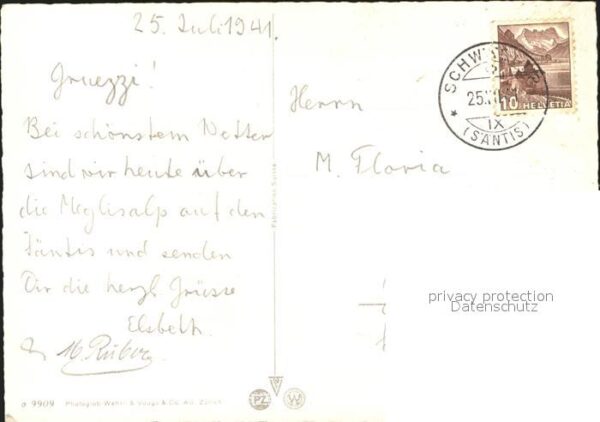 25. Juli 1941.
Gruezzi!
Bei schönstem Wetter
sind wir heute über
die Meglisalp auf den
Säntis und senden
Dir die herzl. Grüsse
Elsbeth.
Herrn
M. Floria
SCHW
25.
IX
(SÄNTIS)
10 HELVETIA
Fabrication Suisse
privacy protection
Datenschutz
o 9909 Photoglob-Wehrli & Vouga & Co. AG. Zürich
PZ W